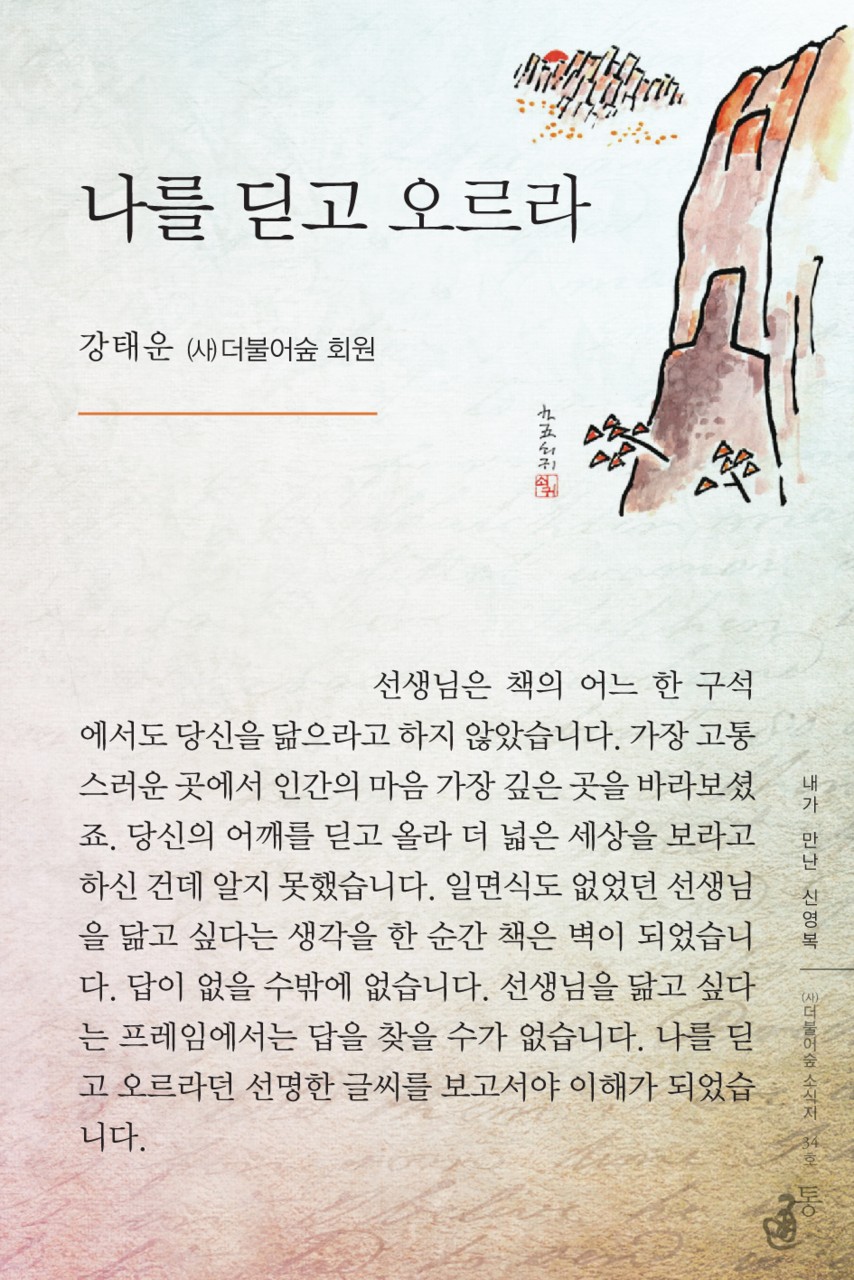 나를 딛고 오르라
강태운 (사)더불어숲 회원
선생님은 책의 어느 한 구석
에서도 당신을 닮으라고 하지 않았습니다. 가장 고통
스러운 곳에서 인간의 마음 가장 깊은 곳을 바라보셨
죠. 당신의 어깨를 딛고 올라 더 넓은 세상을 보라고
하신 건데 알지 못했습니다. 일면식도 없었던 선생님
을 닮고 싶다는 생각을 한 순간 책은 벽이 되었습니
다. 답이 없을 수밖에 없습니다. 선생님을 닮고 싶다
는 프레임에서는 답을 찾을 수가 없습니다. 나를 딛
고 오르라던 선명한 글씨를 보고서야 이해가 되었습
니다.
내가 만난 신영복
(사)더불어숲 소식저 34호
통